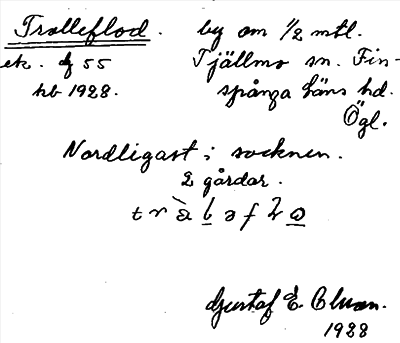 Trolleflod. by om 1/2 mtl.
ek. df 55 Tjällmo sn. Fin-
hb 1928. spånga läns hd.
Ögl.
Nordligast i socknen.
2 gårdar.
Gustaf E. Olman.
1928